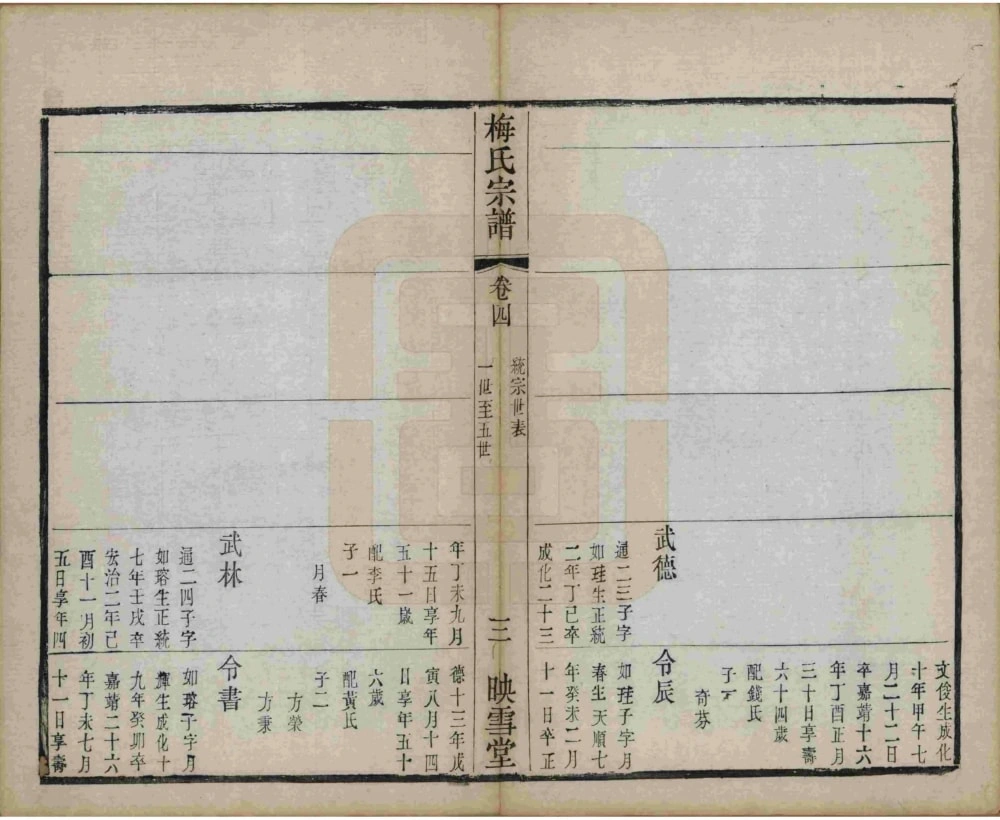 武德
通二三子字
如珪生正統
二年丁巳卒
成化二十三
文俊生成化
十年甲午七
月二十二日
卒嘉靖十六
年丁酉正月
三十日享壽
六十四歲
配錢氏
子一
奇芬
令辰
如珪子字月
春生天順七
年癸未二月
十一日卒正
梅氏宗譜
卷四
統宗世表
一世至五世
三
映雪堂
年丁未九月
十五日享年
五十一歲
配李氏
子一
月春
武林
通二四子字
如瑢生正統
七年壬戌卒
宏治二年己
酉十一月初
五日享年四
德十三年戊
寅八月十四
日享年五十
六歲
配黃氏
子二
方榮
方秉
令書
如瑢子字月
輝生成化十
九年癸卯卒
嘉靖二十六
年丁未七月
十一日享壽